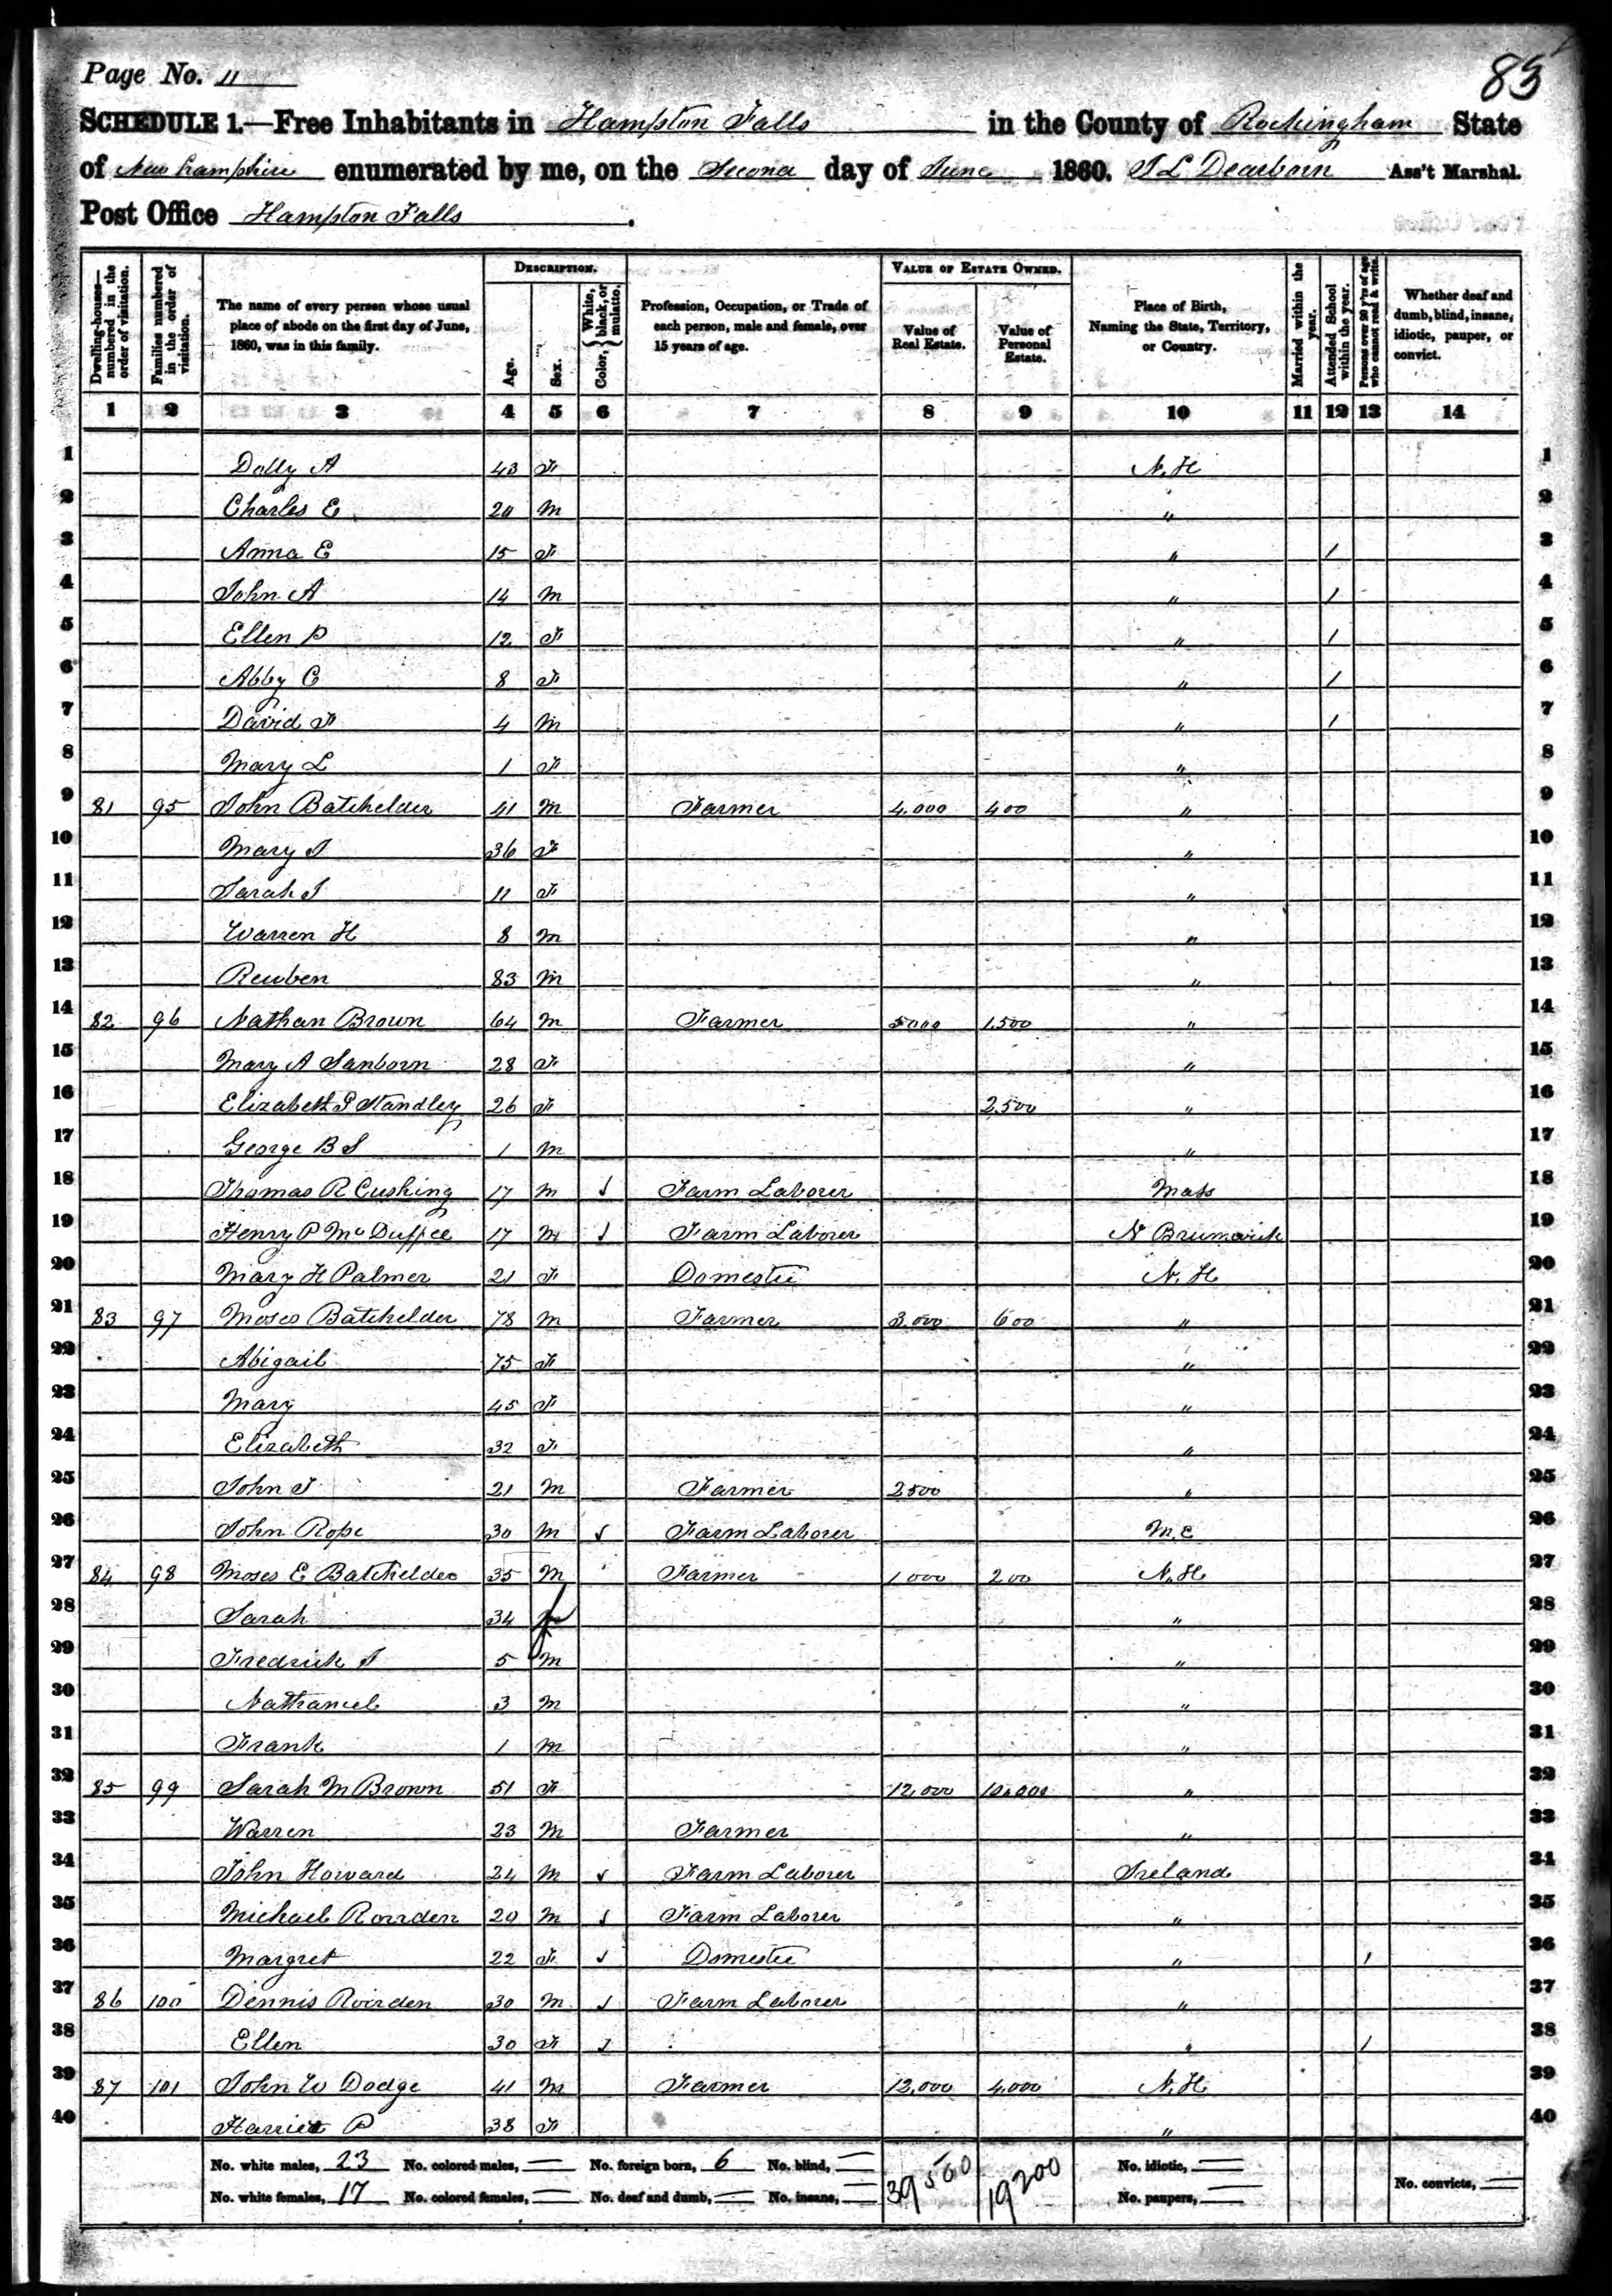 Page No. 11
83
SCHEDULE 1.—Free Inhabitants in Hampton Falls in the County of Rockingham State
of New Hampshire enumerated by me, on the Second day of June 1860. J L Dearborn Ass't Marshal.
Post Office Hampton Falls.
Dwelling-houses—numbered in the order of visitation. Families numbered in the order of visitation. The name of every person whose usual place of abode on the first day of June, 1860, was in this family. DESCRIPTION. Age. Sex. Color, {White, black, or mulatto. Profession, Occupation, or Trade of each person, male and female, over 15 years of age. VALUE OF ESTATE OWNED. Value of Real Estate. Value of Personal Estate. Place of Birth, Naming the State, Territory, or Country. Married within the year. Attended School within the year. Persons over 20 y'rs of age who cannot read & write. Whether deaf and dumb, blind, insane, idiotic, pauper, or convict.
1 2 3 4 5 6 7 8 9 10 11 12 13 14
1 Dolly A 43 F N.H 1
2 Charles E 20 M " 2
3 Anna E 15 F " / 3
4 John A 14 M " / 4
5 Ellen P 12 F " / 5
6 Abby C 8 F " / 6
7 David F 4 M " / 7
8 Mary L 1 F " 8
9 81 95 John Batchelder 41 M Farmer 4.000 400 " 9
10 Mary J 36 F " 10
11 Sarah J 11 F " 11
12 Warren H 8 M " 12
13 Reuben 83 M " 13
14 82 96 Nathan Brown 64 M Farmer 5000 1.500 " 14
15 Mary A Sanborn 28 F " 15
16 Elizabeth P Standley 26 F 2.500 " 16
17 George B S 1 M " 17
18 Thomas R Cushing 17 M ✓ Farm Laborer Mass 18
19 Henry P McDuffee 17 M ✓ Farm Laborer N Brunswick 19
20 Mary H Palmer 21 F Domestic N.H. 20
21 83 97 Moses Batchelder 78 M Farmer 3.000 600 " 21
22 Abigail 75 F " 22
23 Mary 45 F " 23
24 Elizabeth 32 F " 24
25 John T 21 M Farmer 2500 " 25
26 John Rope 30 M ✓ Farm Laborer M.E 26
27 84 98 Moses E Batchelder 35 M Farmer 1000 200 N.H 27
28 Sarah 34 f " 28
29 Fredrick J 5 M " 29
30 Nathaniel 3 M " 30
31 Frank 1 M " 31
32 85 99 Sarah M Brown 51 F 12,000 10,000 " 32
33 Warren 23 M Farmer " 33
34 John Howard 24 M ✓ Farm Laborer Ireland 34
35 Michael Rourden 20 M ✓ Farm Laborer " 35
36 Margret 22 F ✓ Domestic " / 36
37 86 100 Dennis Roirden 30 M ✓ Farm Laborer " 37
38 Ellen 30 F ✓ " / 38
39 87 101 John W Dodge 41 M Farmer 12,000 4.000 N.H. 39
40 Harriet P 38 F " 40
No. white males, 23 No. colored males, — No. foreign born, 6 No. blind, — 39500 19200 No. idiotic, —
No. white females, 17 No. colored females, — No. deaf and dumb, — No. insane, — No. paupers, — No. convicts, —